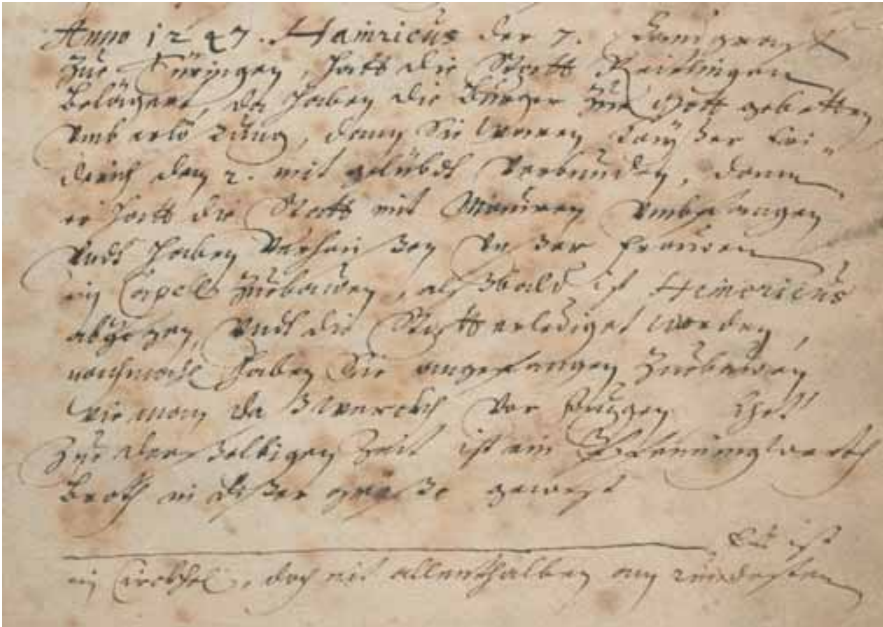 Anno 1247. Hainricus der 7. Landgraff
Zue Türingen, hatt die Statt Reitlingen
belägert, da haben die Burger zue Gott gebetten
umb erlö zung, dann Sie waren Kaÿ der Fri=
derich dem 2. mit gelübdt verbunden, dann
er hatt die Statt mit Mauren umbfangen
undt haben verhaissen unser frauwen
ein Capell zuebawen, alsbald ist Heinricus
abgezogen, undt die Statt erlediget worden,
nachmahl haben Sie angefangen zuebawen
wie man da werckh vor augen
Zue der selbigen Zeit ist ein Pfenningwerth
Broth in diser größe gewest
ist
ein, doch nit allenthalben am